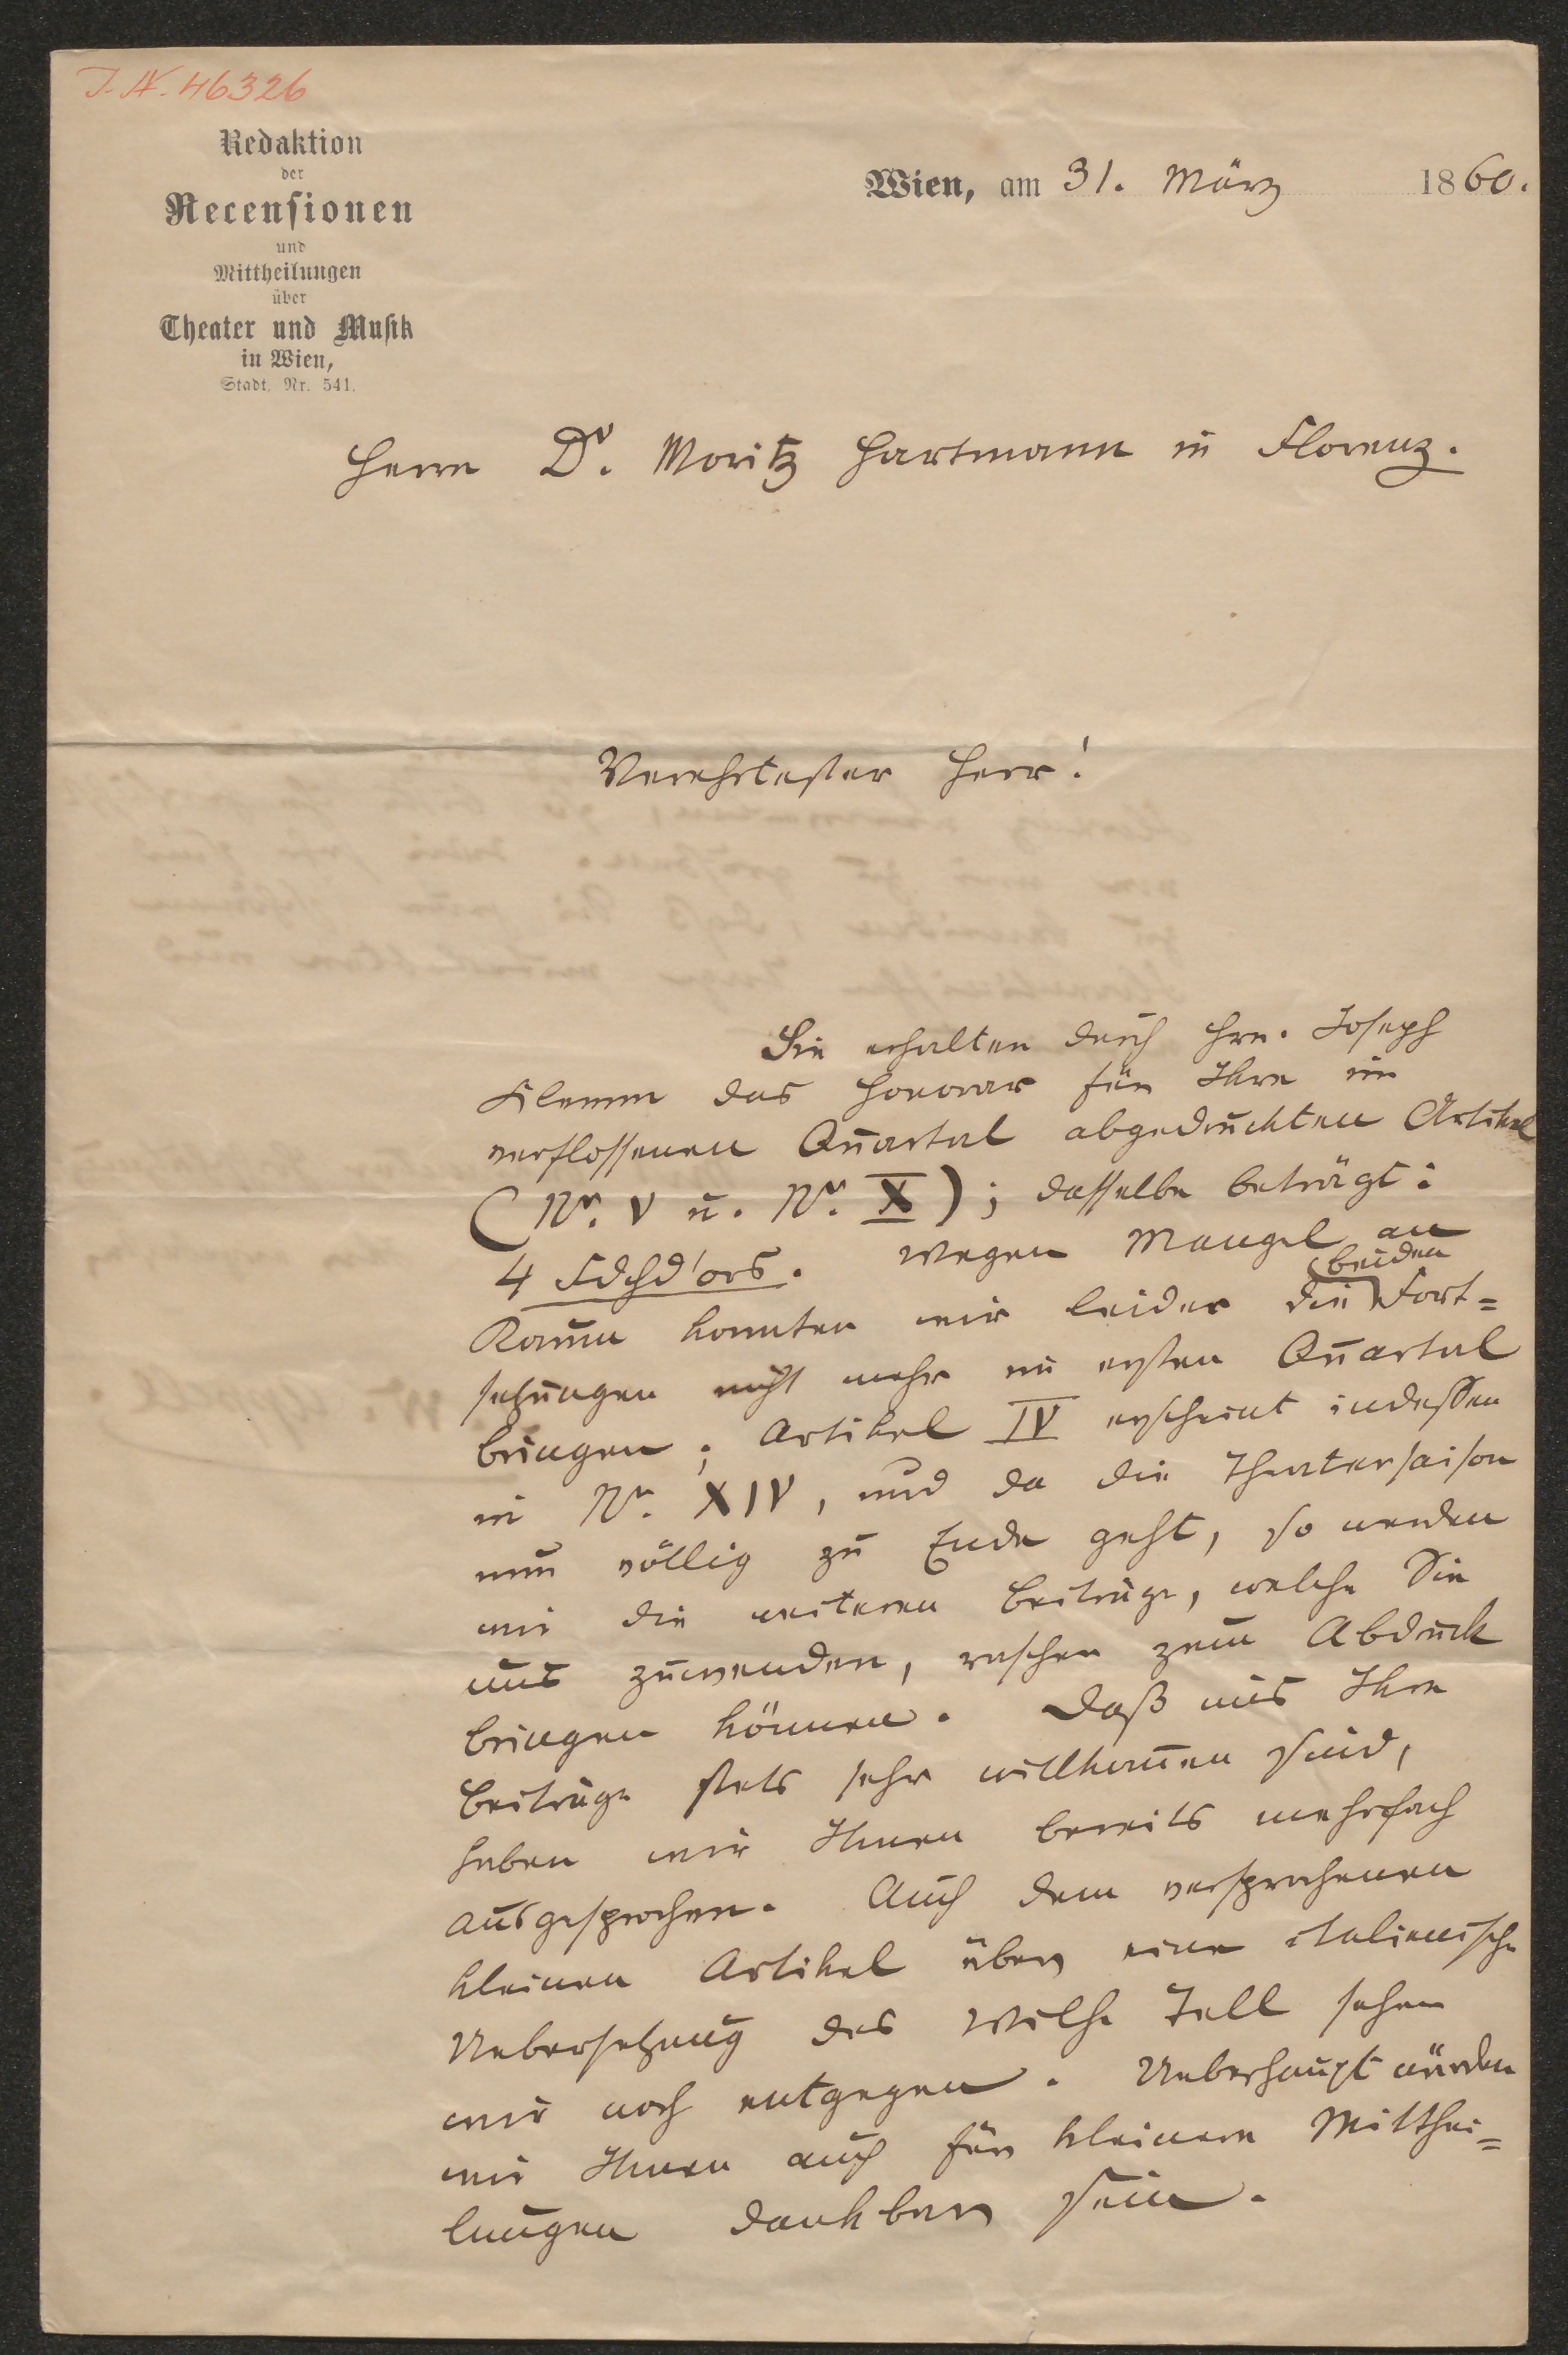 I. N. 46326
Redaktion
der
Recensionen
und
Mittheilungen
über
Theater und Musik
in Wien,
Stadt, Nr. 541.
Wien, am 31. März 1860.
Herrn Dr. Moritz Hartmann in Florenz.
Verehrtester Herr!
Sie erhalten durch Hrn. Joseph
Klemm das Honorar für Ihre im
verflossenen Quartal abgedruckten Artikel
(Nr. V u. Nr. X); dasselbe beträgt:
4 Fdchd'ors. Wegen Mangel an
Raum konnten wir leider die beiden Fort=
setzungen nicht mehr im ersten Quartal
bringen; Artikel IV erscheint indessen
in Nr. XIV, und da die Theatersaison
nun völlig zu Ende geht, so werden
wir die weiteren Beiträge, welche Sie
uns zuwenden, rascher zum Abdruck
bringen können. Daß uns Ihre
Beiträge stets sehr willkom̅en sind,
haben wir Ihnen bereits mehrfach
ausgesprochen. Auch dem versprochenen
kleinen Artikel über eine italienische
Uebersetzung des Wilh. Tell sehen
wir noch entgegen. Ueberhaupt würden
wir Ihnen auch für kleinere Mitthei=
lungen dankbar sein.